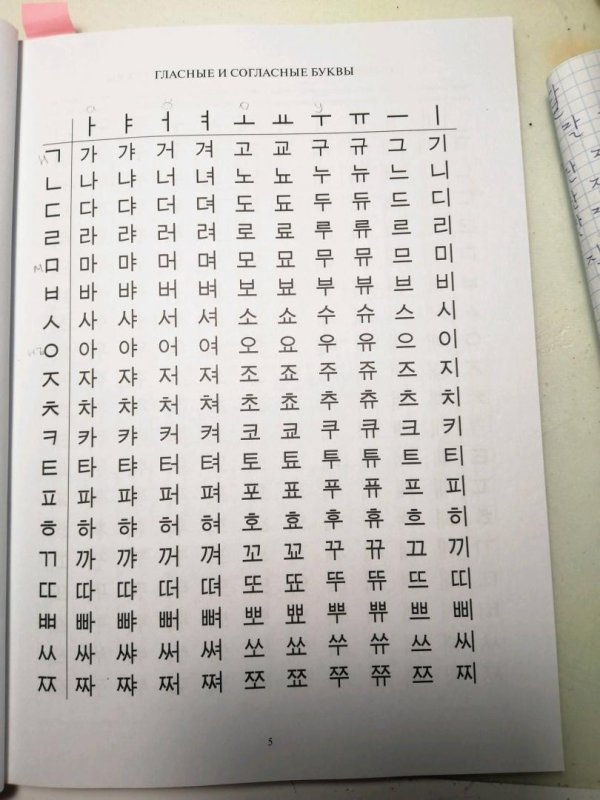 ГЛАСНЫЕ И СОГЛАСНЫЕ БУКВЫ
а о у
ㅏ ㅑ ㅓ ㅕ ㅗ ㅛ ㅜ ㅠ ㅡ ㅣ
ㄱ 가 갸 거 겨 고 교 구 규 그 기
ㄴ 나 냐 너 녀 노 뇨 누 뉴 느 니
ㄷ 다 댜 더 뎌 도 됴 두 듀 드 디
ㄹ 라 랴 러 려 로 료 루 류 르 리
ㅁ 마 먀 머 며 모 묘 무 뮤 므 미
ㅂ 바 뱌 버 벼 보 뵤 부 뷰 브 비
ㅅ 사 샤 서 셔 소 쇼 수 슈 스 시
ㅇ 아 야 어 여 오 요 우 유 으 이
ㅈ 자 쟈 저 져 조 죠 주 쥬 즈 지
ㅊ 차 챠 처 쳐 초 쵸 추 츄 츠 치
ㅋ 카 캬 커 켜 코 쿄 쿠 큐 크 키
ㅌ 타 탸 터 텨 토 툐 투 튜 트 티
ㅍ 파 퍄 퍼 펴 포 표 푸 퓨 프 피
ㅎ 하 햐 허 혀 호 효 후 휴 흐 히
ㄲ 까 꺄 꺼 껴 꼬 꾜 꾸 뀨 끄 끼
ㄸ 따 땨 떠 뗘 또 뚀 뚜 뜌 뜨 띠
ㅃ 빠 뺘 뻐 뼈 뽀 뾰 뿌 쀼 쁘 삐
ㅆ 싸 쌰 써 쎠 쏘 쑈 쑤 쓔 쓰 씨
ㅉ 짜 쨔 쩌 쪄 쪼 쬬 쭈 쮸 쯔 찌
5